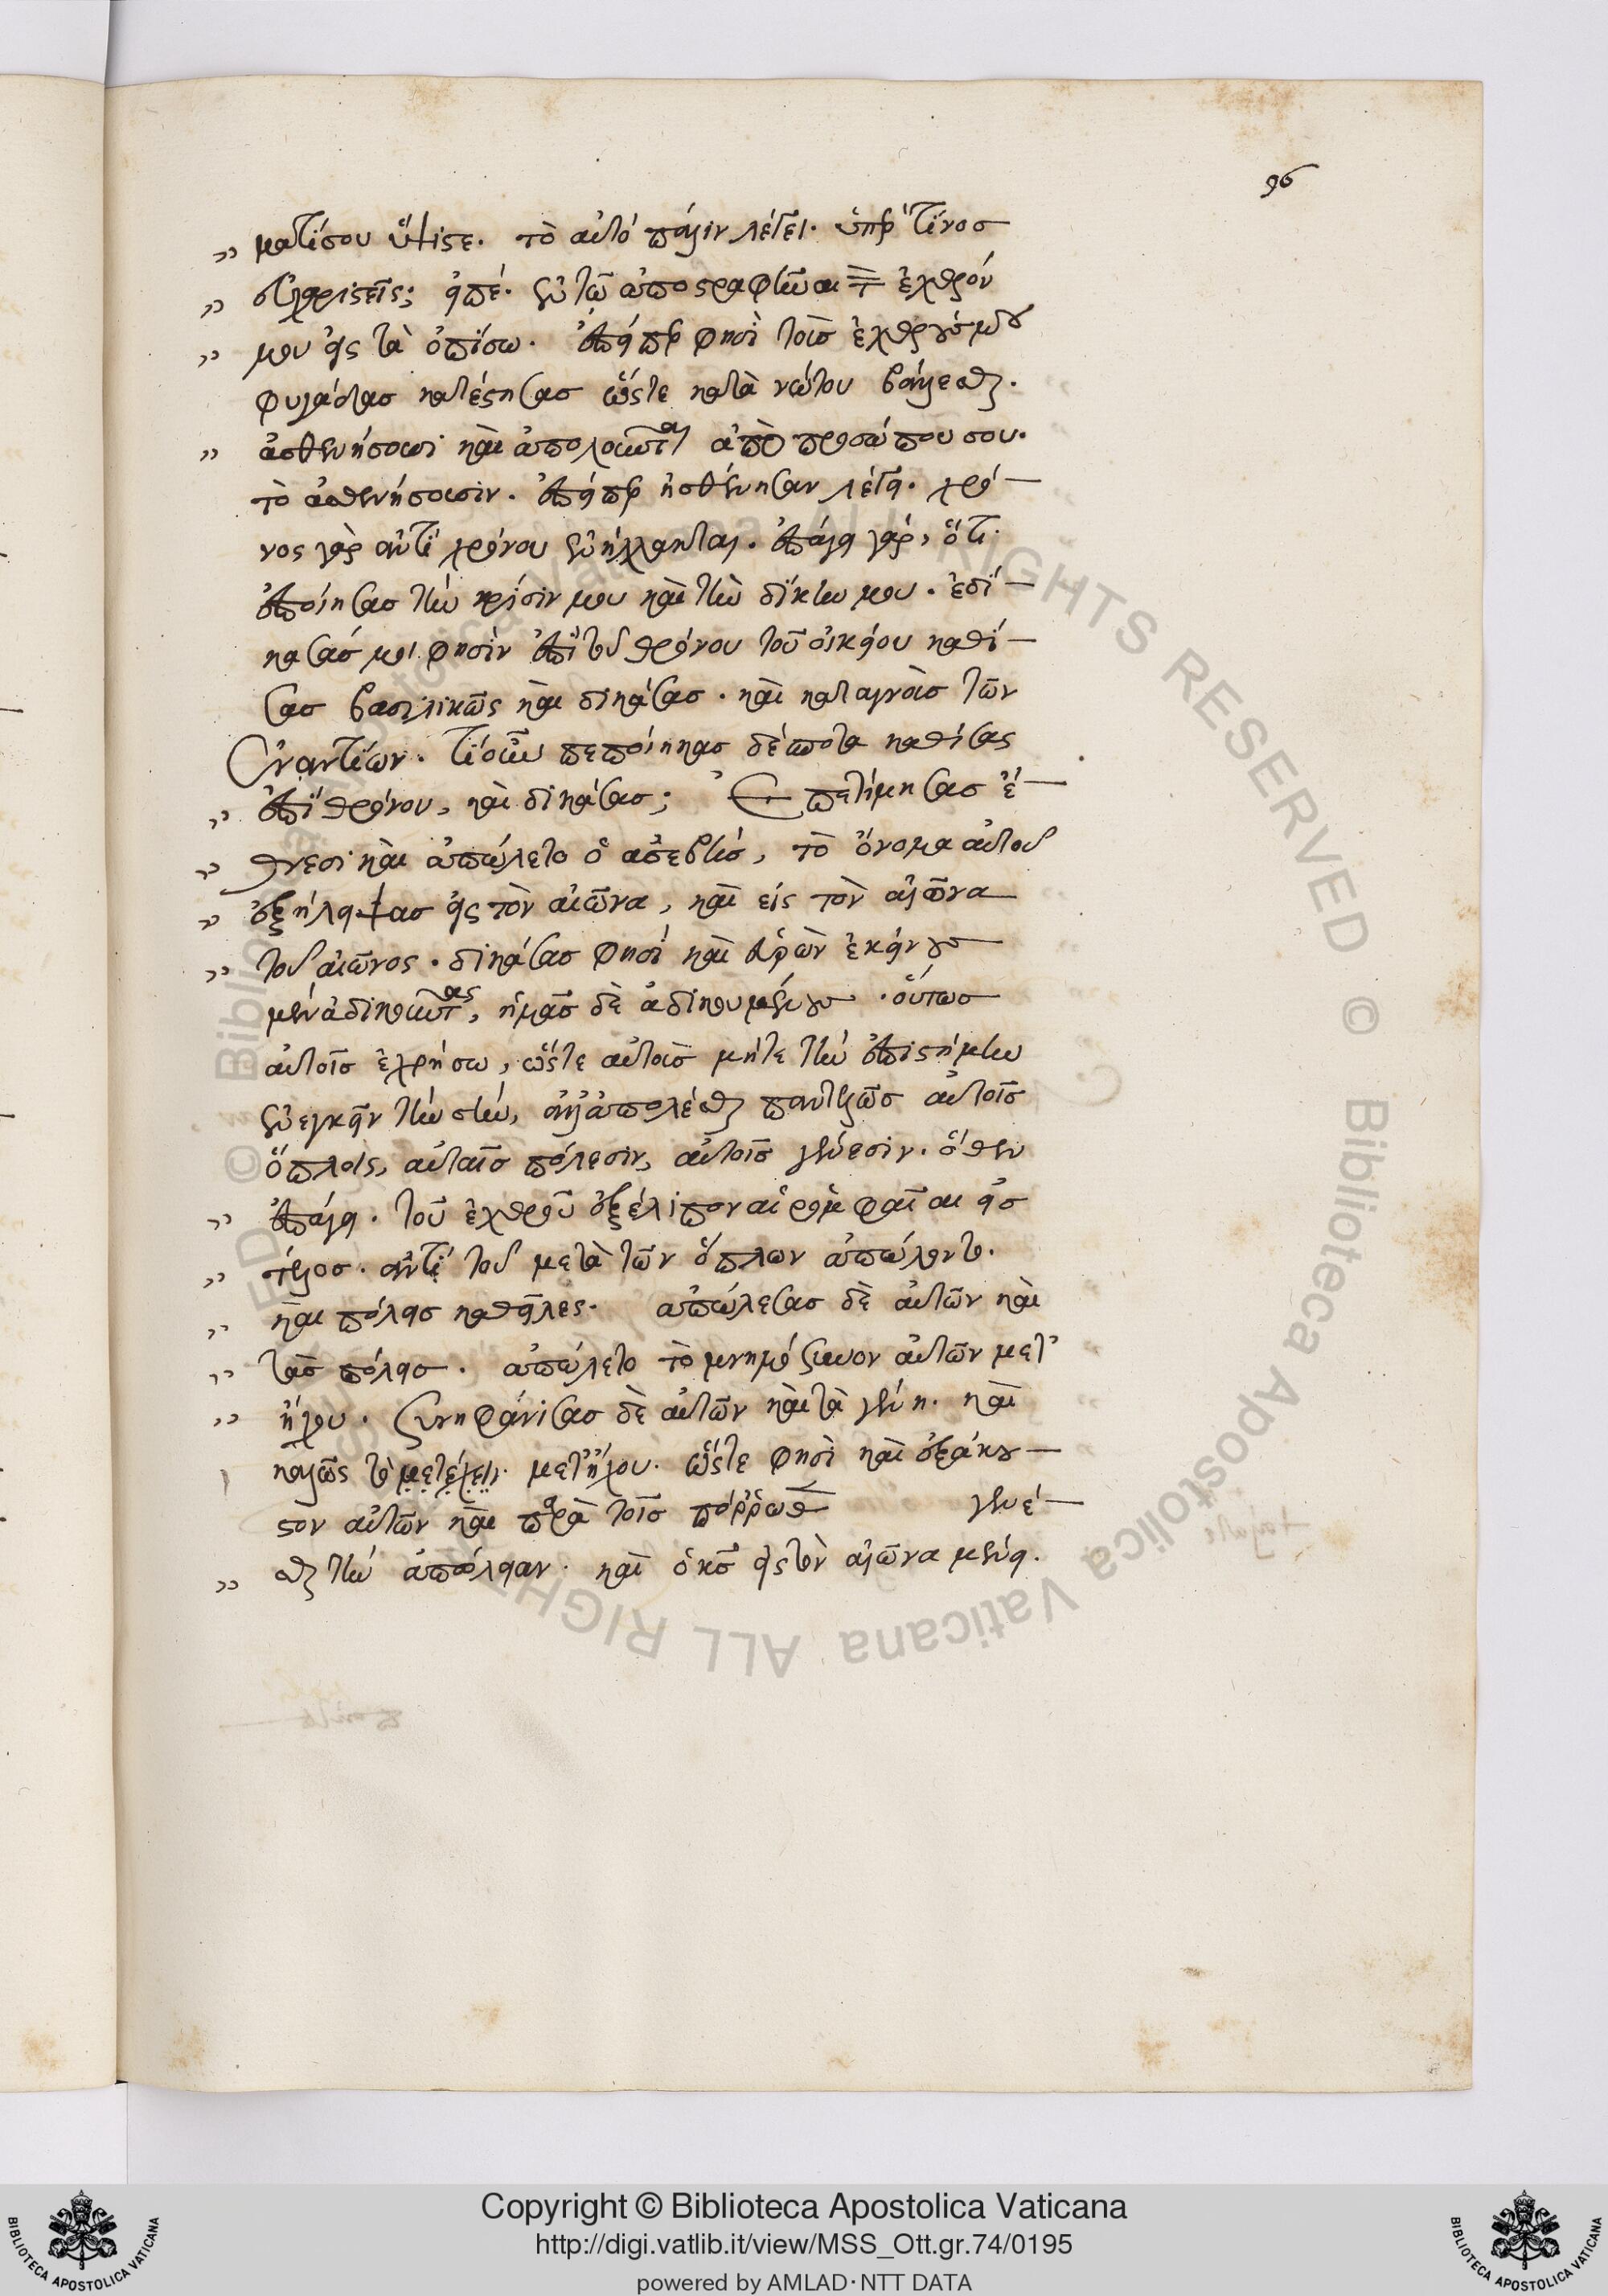 96
ματί σου ὕψιστε. τὸ αὐτὸ πάλιν λέγει. ὑπὲρ τίνος
εὐχαριστεῖς; εἰπέ. ἐν τῷ ἀποστραφῆναι τὸν ἐχθρόν
μου εἰς τὰ ὀπίσω. ἐπείπερ φησὶ τοὺς ἐχθρούς μου
φυγάδας κατέστησας ὥστε κατὰ νώτου βάλλεσθαι.
ἀσθενήσουσι καὶ ἀπολοῦνται ἀπὸ προσώπου σου.
τὸ ἀσθενήσουσιν. ἐπείπερ ἠσθένησαν λέγει. χρό-
νος γὰρ ἀντὶ χρόνου ἐνήλλακται. ἐπάγει γάρ, ὅτι
ἐποίησας τὴν κρίσιν μου καὶ τὴν δίκην μου. ἐδί-
κασάς μοι φησὶν ἐπὶ τοῦ θρόνου τοῦ οἰκείου καθί-
σας βασιλικῶς καὶ δικάσας. καὶ καταγνοὺς τῶν
ἐναντίων. τί οὖν πεποίηκας δέσποτα καθίσας
ἐπὶ θρόνου, καὶ δικάσας; Ἐπετίμησας ἔ-
θνεσι καὶ ἀπώλετο ὁ ἀσεβής, τὸ ὄνομα αὐτοῦ
ἐξήλειψας εἰς τὸν αἰῶνα, καὶ εἰς τὸν αἰῶνα
τοῦ αἰῶνος. δικάσας φησὶ καὶ εὑρὼν ἐκείνους
μὲν ἀδικοῦντας, ἡμᾶς δὲ ἀδικουμένους. οὕτως
αὐτοῖς ἐχρήσω, ὥστε αὐτοὺς μήτε τὴν ἐπιστήμην
ἐνεγκεῖν τὴν σήν, ἀλλ' ἀπολέσθαι παντελῶς αὐτοῖς
ὅπλοις, αὐταῖς πόλεσιν, αὐτοῖς γένεσιν. ὅθεν
ἐπάγει. τοῦ ἐχθροῦ ἐξέλιπον αἱ ῥομφαῖαι εἰς
τέλος. ἀντὶ τοῦ μετὰ τῶν ὅπλων ἀπώλοντο.
καὶ πόλεις καθεῖλες. ἀπώλεσας δὲ αὐτῶν καὶ
τὰς πόλεις. ἀπώλετο τὸ μνημόσυνον αὐτῶν μετ'
ἤχου. συνηφάνισας δὲ αὐτῶν καὶ τὰ γένη. καὶ
καλῶς τὸ μετέχει. μετ' ἤχου. ὥστε φησὶ καὶ ἐξάκου-
στον αὐτῶν καὶ παρὰ τοῖς πόρρωθεν γενέ-
σθαι τὴν ἀπώλειαν. καὶ ὁ κς εἰς τὸν αἰῶνα μένει.
© Biblioteca Apostolica Vaticana ALL RIGHTS RESERVED
BIBLIOTECA APOSTOLICA VATICANA
Copyright © Biblioteca Apostolica Vaticana
http://digi.vatlib.it/view/MSS_Ott.gr.74/0195
powered by AMLAD·NTT DATA
BIBLIOTECA APOSTOLICA VATICANA